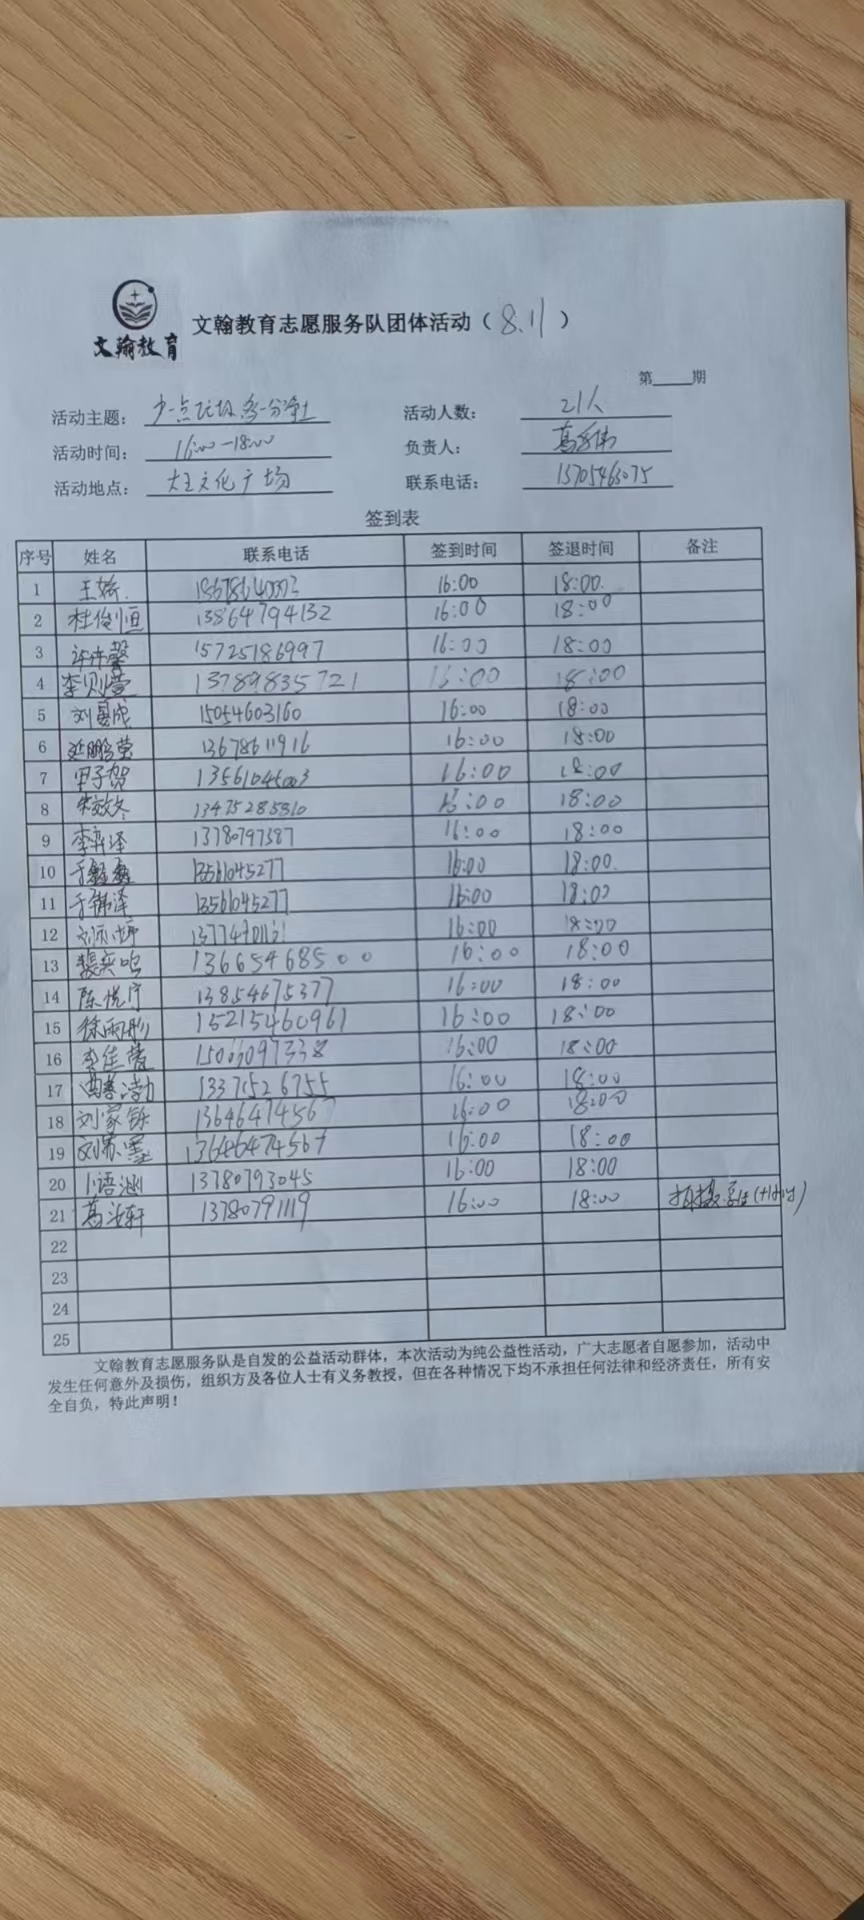 文翰教育
文翰教育志愿服务队团体活动（8.11）
第____期
活动主题：少一点垃圾多一分净土 活动人数：21人
活动时间：16:00—18:00 负责人：葛
活动地点：大王文化广场 联系电话：13705463075
签到表
序号 姓名 联系电话 签到时间 签退时间 备注
1 王娇 16:00 18:00
2 杜俊恒 13864794132 16:00 18:00
3 许 馨 15725186997 16:00 18:00
4 李则萱 13789835721 16:00 18:00
5 刘 15054603160 16:00 18:00
6 延鹏莹 13678611916 16:00 18:00
7 田子贺 16:00 18:00
8 朱效冬 13475285810 16:00 18:00
9 李奕泽 13780797387 16:00 18:00
10 于鑫鑫 13561045277 16:00 18:00
11 于锦泽 13561045277 16:00 18:00
12 刘 16:00 18:00
13 裴奕鸣 13665468500 16:00 18:00
14 陈悦宁 13854675377 16:00 18:00
15 徐雨彤 15215460961 16:00 18:00
16 李佳萱 15063097338 16:00 18:00
17 13371526755 16:00 18:00
18 刘家铄 13646474567 16:00 18:00
19 刘家墨 13646474567 16:00 18:00
20 卜语涵 13780793045 16:00 18:00
21 葛 轩 13780791119 16:00 18:00 拍摄 总结(+1小时)
22
23
24
25
文翰教育志愿服务队是自发的公益活动群体，本次活动为纯公益性活动，广大志愿者自愿参加，活动中
发生任何意外及损伤，组织方及各位人士有义务教授，但在各种情况下均不承担任何法律和经济责任，所有安
全自负，特此声明！